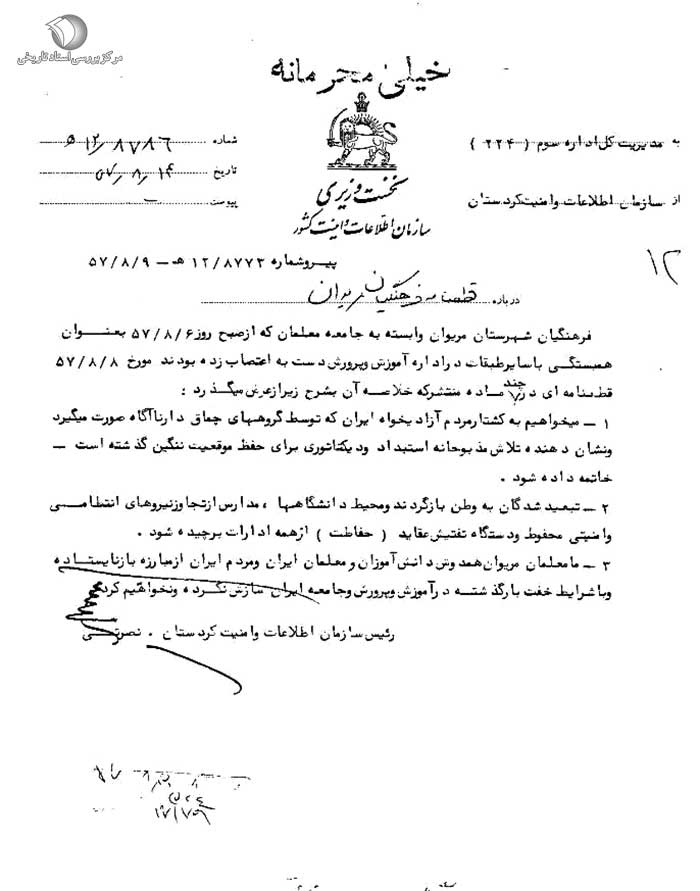 مرکز بررسی اسناد تاریخی
خیلی محرمانه
به مدیریت کل اداره سوم ( ۲۲۴ )
شماره ۱۲/۸۷۸۶ ه
تاریخ ۵۷/۸/۱۴
از سازمان اطلاعات و امنیت کردستان
پیوست
نخست وزیری
سازمان اطلاعات و امنیت کشور
۱۲
پیرو شماره ۱۲/۸۷۷۳ هـ - ۵۷/۸/۹
درباره قطعنامه فرهنگیان مریوان
فرهنگیان شهرستان مریوان وابسته به جامعه معلمان که ازصبح روز ۵۷/۸/۶ بعنوان
همبستگی باسایرطبقات در اداره آموزش وپرورش دست به اعتصاب زده بودند مورخ ۵۷/۸/۸
قطعنامه ای در چند ماده منتشرکه خلاصه آن بشرح زیرازعرض میگذرد :
۱ - میخواهیم به کشتارمردم آزادیخواه ایران که توسط گروههای چماق دارناآگاه صورت میگیرد
ونشان دهنده تلاش مذبوحانه استبداد ودیکتاتوری برای حفظ موقعیت ننگین گذشته است -
خاتمه داده شود .
۲ - تبعید شدگان به وطن بازگردند ومحیط دانشگاهها ، مدارس ازتجاوزنیروهای انتظامی
وامنیتی محفوظ ودستگاه تفتیش عقاید ( حفاظت ) ازهمه ادارات برچیده شود .
۳ - مامعلمان مریوان همدوش دانش آموزان ومعلمان ایران ومردم ایران ازمبارزه بازنایستاده
وباشرایط خفت بارگذشته درآموزش وپرورش وجامعه ایران سازش نکرده ونخواهیم کرد
رئیس سازمان اطلاعات وامنیت کردستان . نصرتی